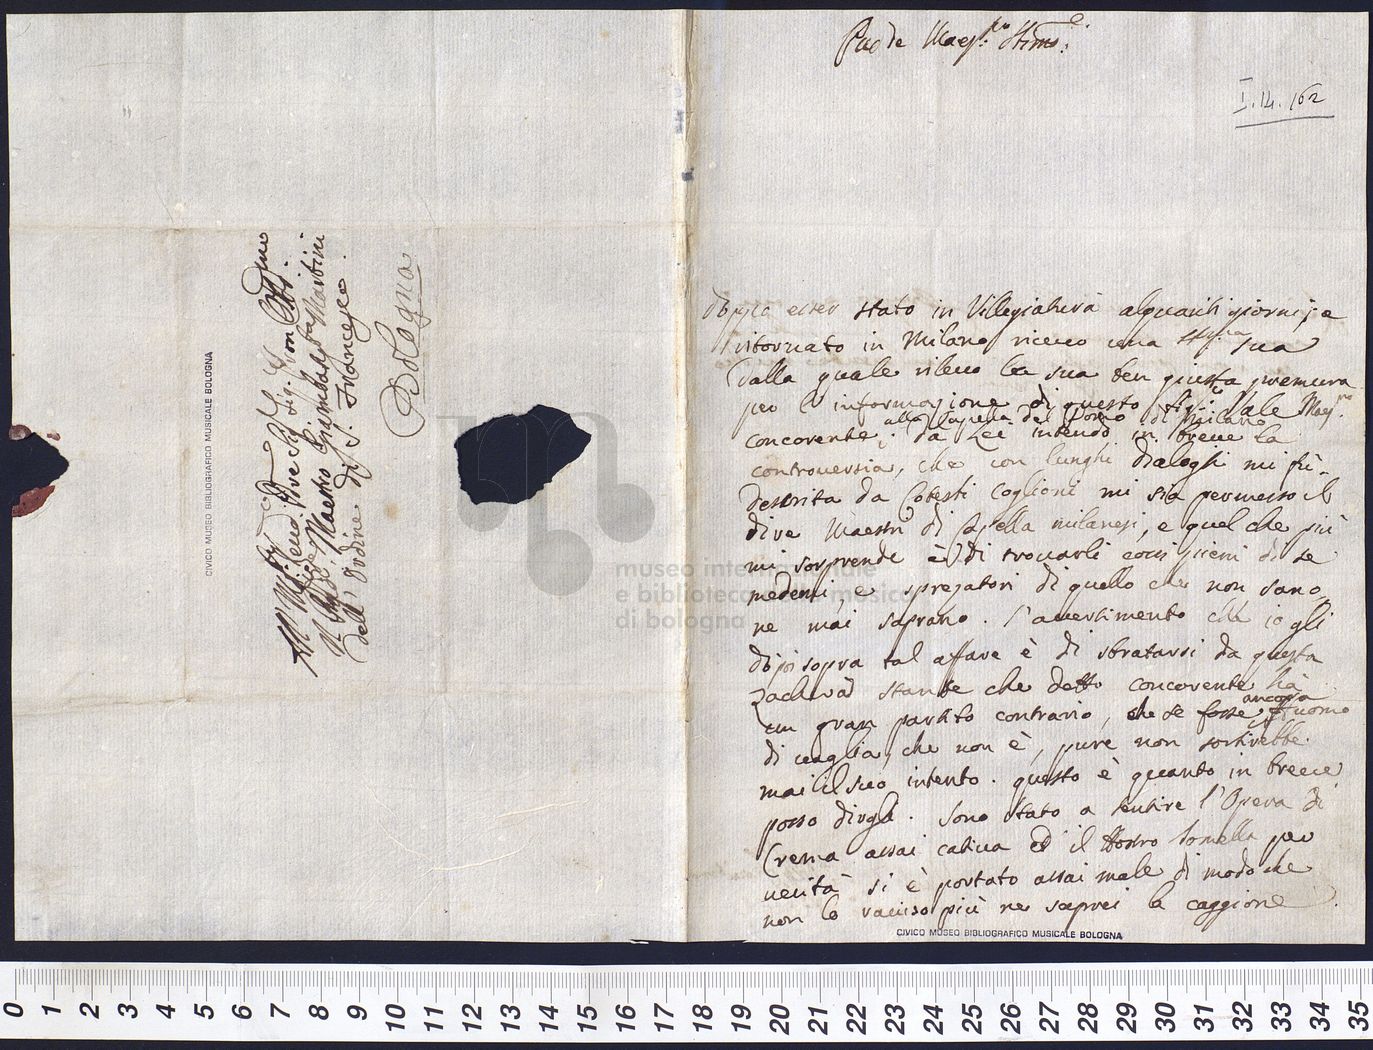 Pad.e Maes.ro Stim.o
I. 14. 162
Dopo esser stato in Villegiatura alquanti giorni, e
ritornato in Milano ricevo una stim.ma sua
dalla quale rilevo la sua ben giusta premura
per l'informazione di questo Sig.e Vale Maes.ro
concorente alla Capella del Domo di Milano
. da Lei intendo in breve la
controversia, che con lunghi dialoghi mi fù
descrita da Cotesti Coglioni mi sia permesso il
dire Maestri di Capella milanesi, e quel che più
mi sorprende è di trovarli così pieni di se
medemi, e sprezatori di quello che non sano,
ne mai saprano. l'avertimento che io gli
dò poi sopra tal affare è di sbratarsi da questa
zachera stante che detto concorente hà
un gran partito contrario, che se fosse ancora uomo
di vaglia, che non è, pure non sortirebbe
mai il suo intento. questo è quanto in breve
posso dirgli. Sono stato a sentire l'Opera di
Crema assai cativa ed il Nostro Tomella per
verità si è portato assai male di modo che
non lo raviso più ne saprei la caggione.
Al M.to Rev.do Pre Sig. Sig. e Pron Col.mo
Il Pad.e Maestro Giambat.ta Martini
dell' Ordine di S. Francesco.
Bologna
CIVICO MUSEO BIBLIOGRAFICO MUSICALE BOLOGNA
CIVICO MUSEO BIBLIOGRAFICO MUSICALE BOLOGNA
museo internazionale
e biblioteca della musica
di bologna
0 1 2 3 4 5 6 7 8 9 10 11 12 13 14 15 16 17 18 19 20 21 22 23 24 25 26 27 28 29 30 31 32 33 34 35